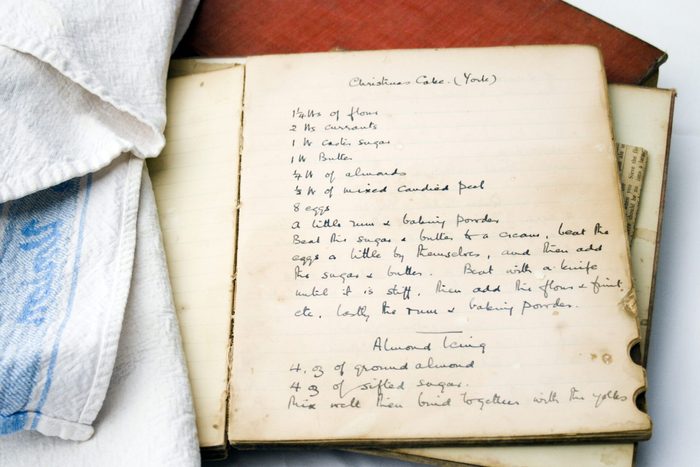 Christmas Cake. (York)
1¼ lbs of flour
2 lbs currants
1 lb castor sugar
1 lb Butter
¼ lb of almonds
½ lb of mixed candied peel
8 eggs
a little rum & baking powder
Beat the sugar & butter to a cream, beat the
eggs a little by themselves, and then add
the sugar & butter. Beat with a knife
until it is stiff, then add the flour & fruit,
etc, lastly the rum & baking powder.
Almond Icing
4. oz of ground almond
4 oz of sifted sugar.
Mix well then bind together with the yolks